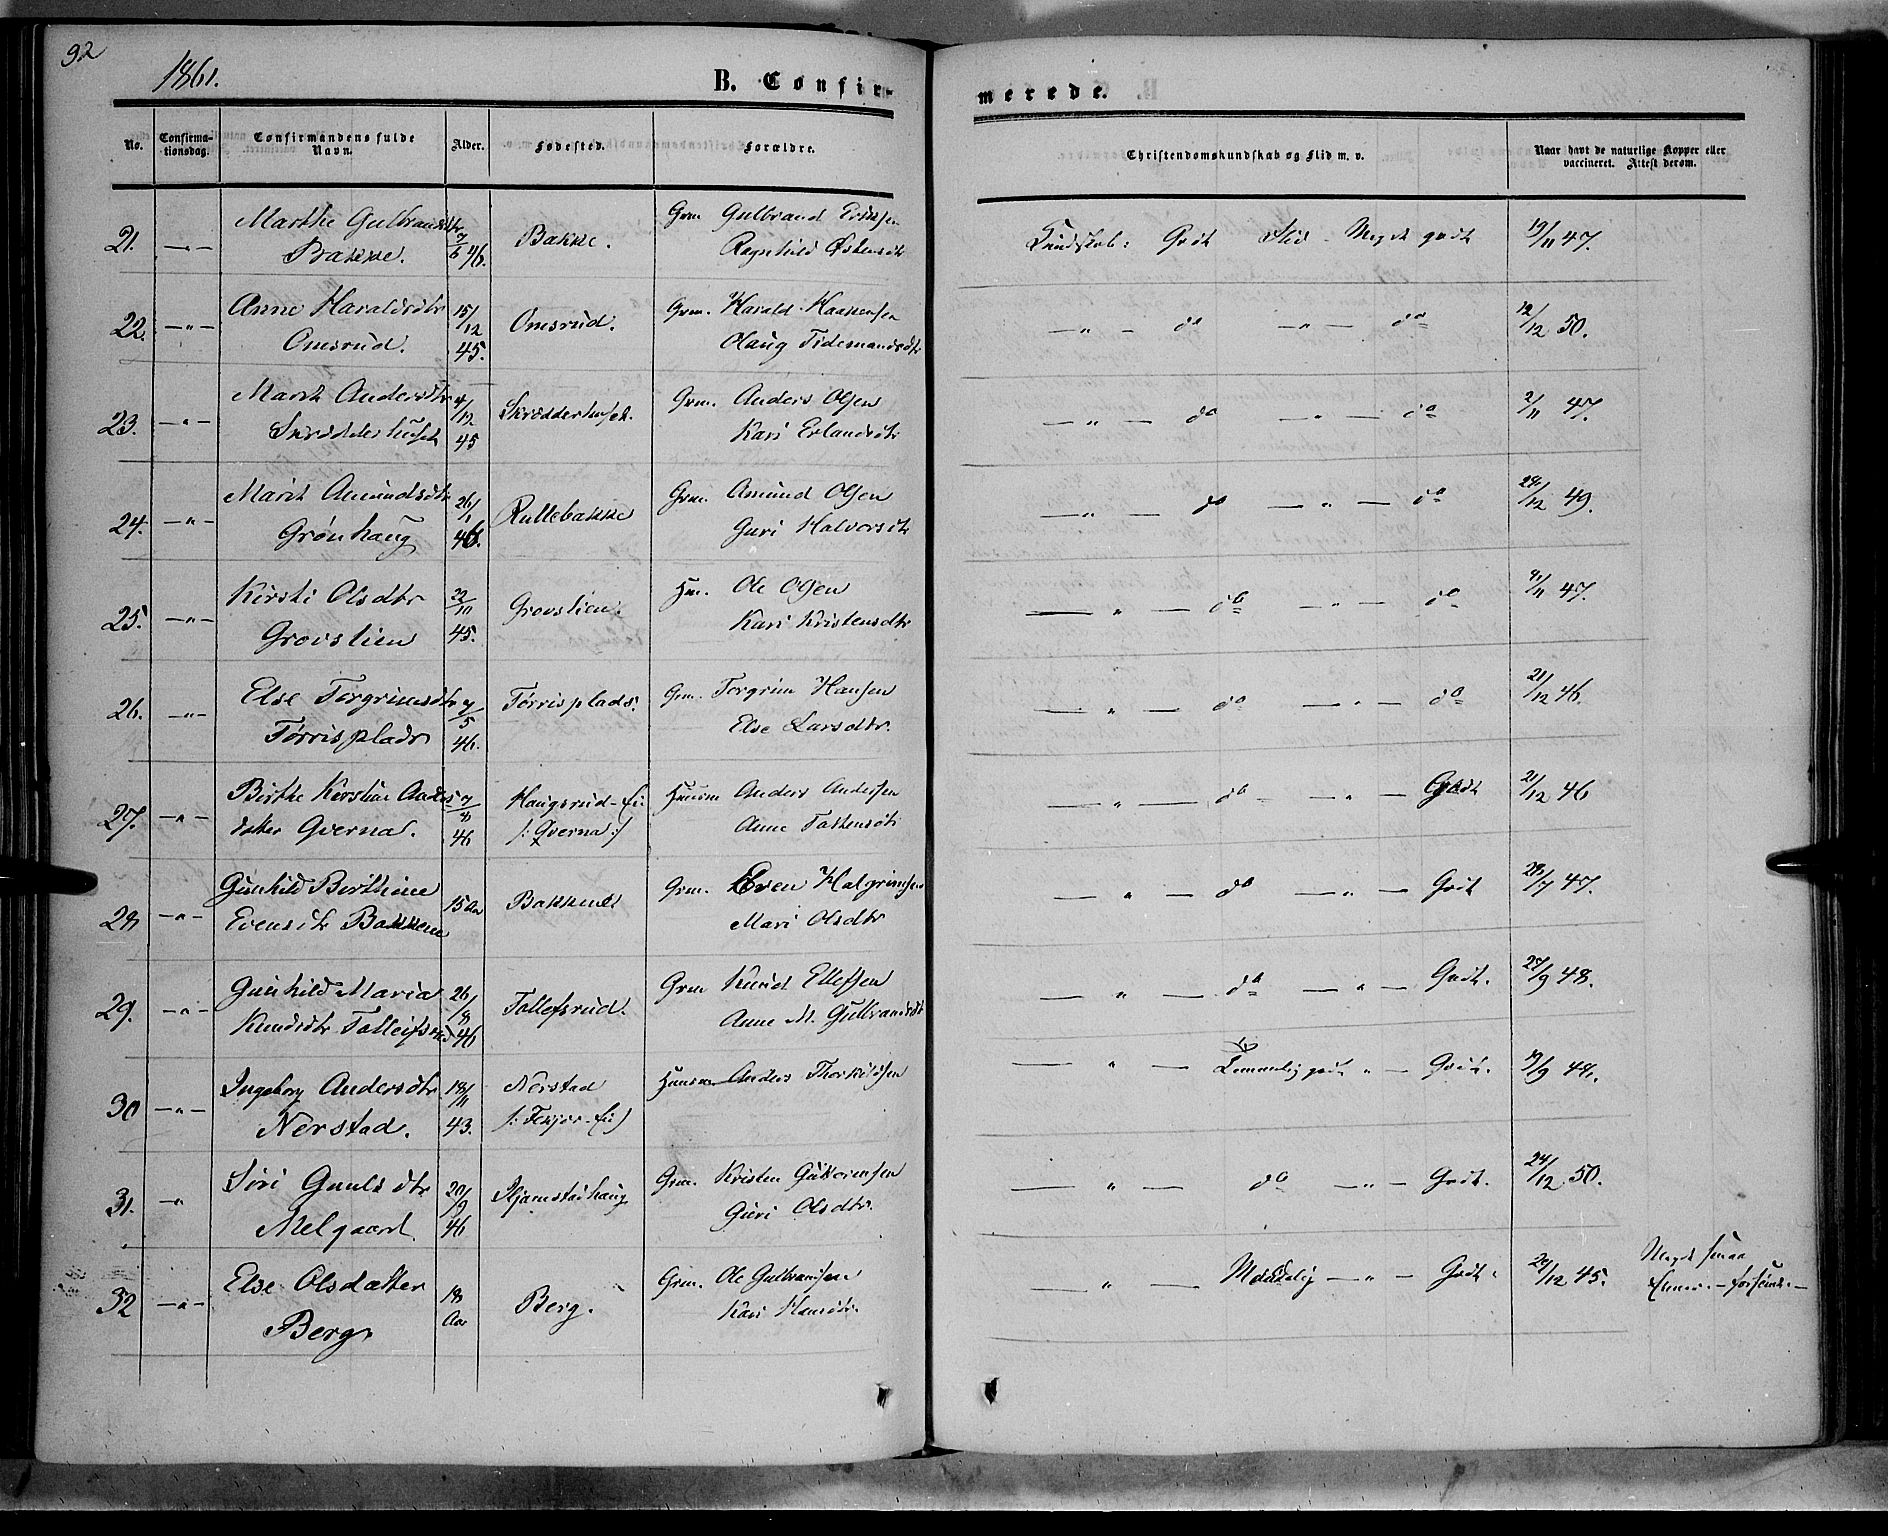 92
1861.
B. Confir-
merede.
No.
Confirma-
tionsdag.
Confirmandens fulde
Navn.
Alder.
Fødested.
Forældre.
Christendomskundskab og Flid m. v.
Naar havt de naturlige Kopper eller
vaccineret. Attest derom.
21. —"— Marthe Gulbrandsdtr 7/6 46. Bakke. Grm Gulbrand Eriksen Kundskab: Godt Flid Meget godt 19/11 47.
Bakke. Ragnhild Østensdtr
22. —"— Anne Haraldsdtr 15/12 45. Omsrud. Grm. Harald Haakensen —"— do —"— do 12/12 50.
Omsrud. Olaug Tidemandsdtr
23. —"— Marit Andersdtr 4/12 45 Skrædderhuset. Grm. Anders Olsen —"— do —"— do 2/11 47.
Skrædderhuset Kari Erlandsdtr
24. —"— Marit Amundsdtr 26/1 46. Rullebakke Grm. Amund Olsen —"— do —"— do 28/12 49.
Grønhaug Guri Halvorsdtr
25. —"— Kirsti Olsdtr 22/10 45. Grovstien. Hm. Ole Olsen —"— do —"— do 4/11 47.
Grovstien Kari Kristensdtr
26. —"— Else Torgrimsdtr 7/5 46. Tørrisplads. Grm. Torgrim Hansen —"— do —"— do 21/12 46.
Tørrisplads Else Larsdtr.
27. —"— Birthe Kirstine Anders 7/8 46 Haugsrud-Ei Huusm Anders Andersen —"— do —"— Godt 21/12 46
datter Qverna. /: Qverna :/ Anne
28 —"— Gunhild Berthine 15 Aar Bakkene Grm. Even Halgrimsen —"— do —"— Godt 28/7 47.
Evensdtr Bakkene Mari Olsdtr
29. —"— Gunhild Maria 26/8 46 Tollefsrud. Grm Knud Ellefsen —"— do —"— Godt. 27/9 48.
Knudsdtr Tolleifsrud Anne M. Gulbrandsdtr
30 —"— Ingeborg Andersdtr 18/11 43. Nerstad Huusm Anders Thorkildsen —"— Temmelig godt " — Godt. 19/9 44.
Nerstad.
31. " Siri Gunlsdtr 20/9 46 Grm. Kristen Guttormsen —"— do —"— Godt. 24/12 50.
Melgaard Guri Olsdtr.
32 —"— Else Olsdatter 18 Aar Berg. Grm. Ole Gulbransen " — Maadelig —"— Godt. 20/12 45. Meget smaa
Berg Kari Hansdtr. Evner.